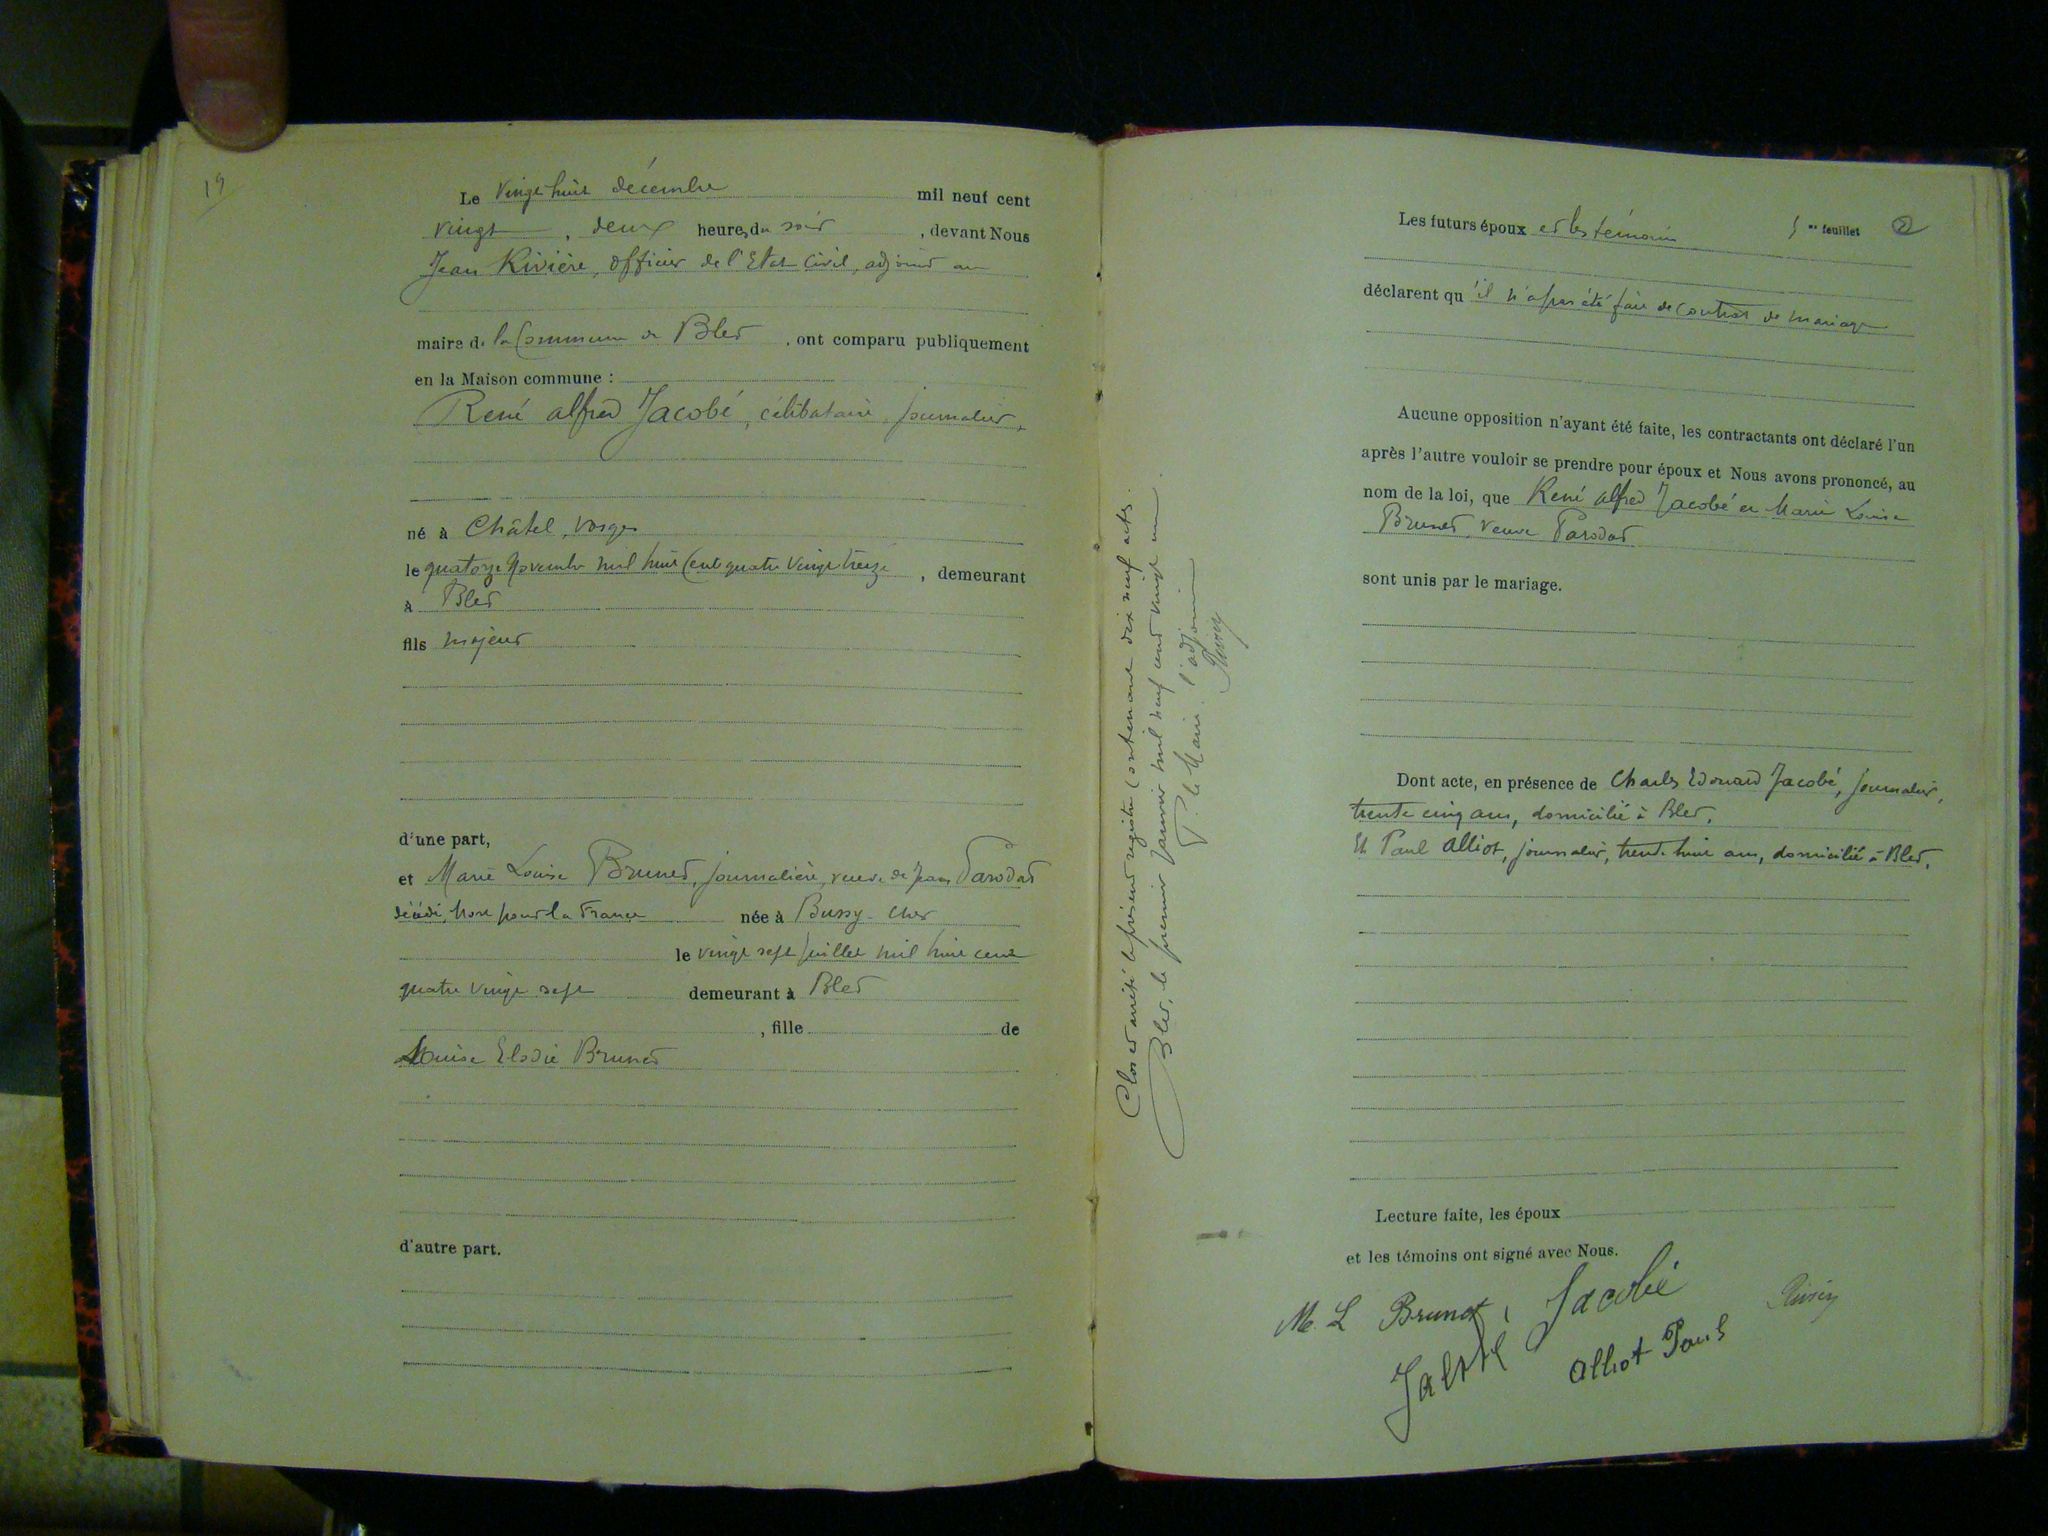 19
Le vingt huit décembre mil neuf cent
vingt, deux heures du soir, devant Nous
Jean Rivière, officier de l'Etat Civil, adjoint au
maire de la Commune de Blet, ont comparu publiquement
en la Maison commune :
René alfred Jacobé, célibataire, journalier,
né à Châtel, Vosges
le quatorze Novembre mil huit Cent quatre vingt treize, demeurant
à Blet
fils majeur
d'une part,
et Marie Louise Brunet, journalière, veuve de Jean Parodat
décédé, Mort pour la France née à Bussy - Cher
le vingt sept Juillet mil huit cent
quatre vingt sept demeurant à Blet
, fille de
Louise Elodie Brunet
d'autre part.
Clos et arrêté le présent registre contenant dix neuf actes.
Blet, le premier Janvier mil neuf cent vingt un.
P. le Maire, l'adjoint
Rivière
5 me feuillet 2
Les futurs époux et les témoins
déclarent qu'il n'a pas été fait de contrat de mariage
Aucune opposition n'ayant été faite, les contractants ont déclaré l'un
après l'autre vouloir se prendre pour époux et Nous avons prononcé, au
nom de la loi, que René alfred Jacobé et Marie Louise
Brunet veuve Parodat
sont unis par le mariage.
Dont acte, en présence de Charles Edouard Jacobé, journalier,
trente cinq ans, domicilié à Blet,
Et Paul Alliot, journalier, trente huit ans, domicilié à Blet,
Lecture faite, les époux
et les témoins ont signé avec Nous.
M. L Brunet Jacobé Rivière
Alliot Paul